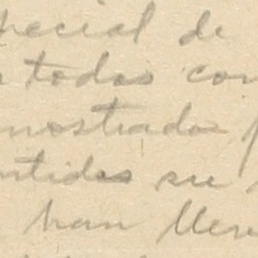 pecial de
todas con
mostrados
ntidos su
han llen